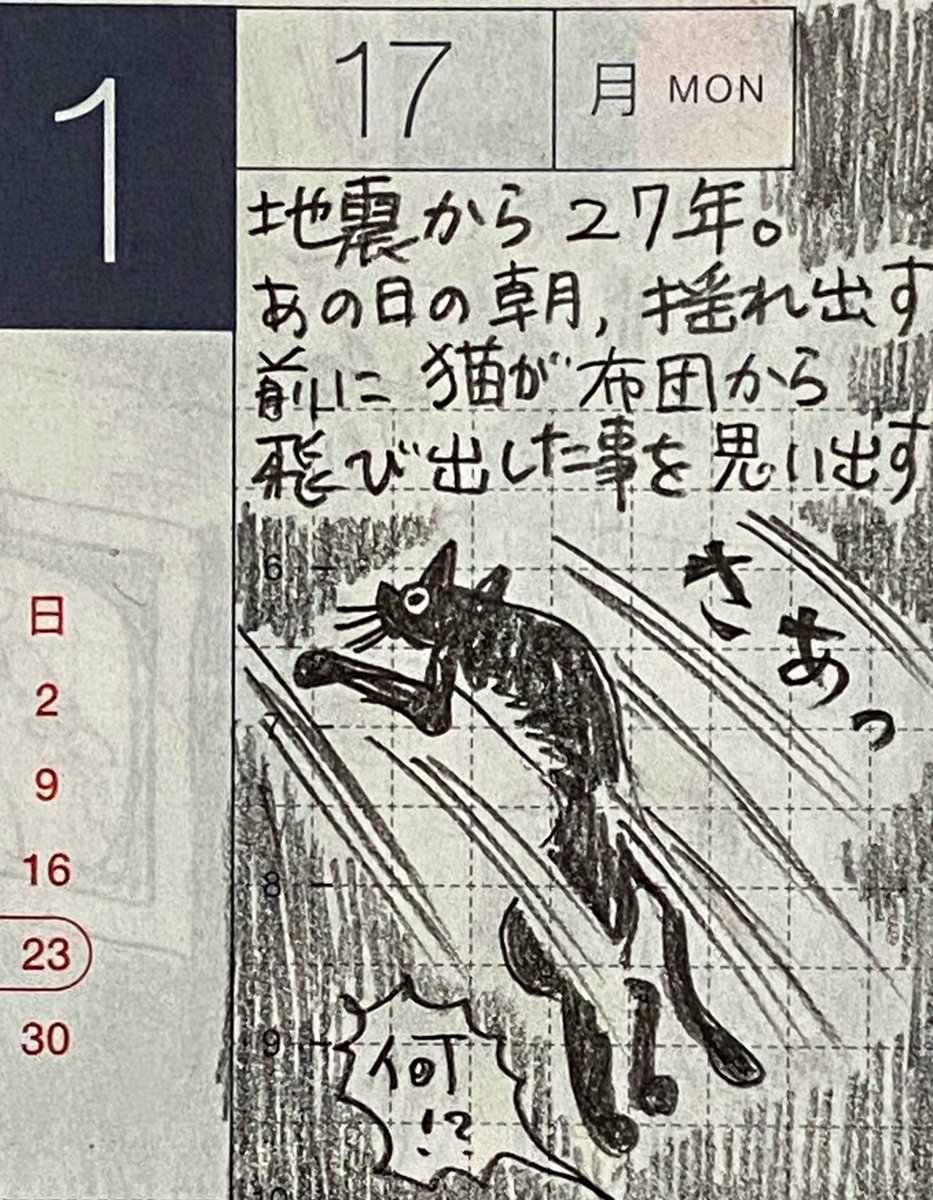 1
17
月 MON
地震から27年。
あの日の朝,揺れ出す
前に 猫が布団から
飛び出した事を思い出す
さあっ
6
7
8
9
10
日
2
9
16
23
30
何
!?